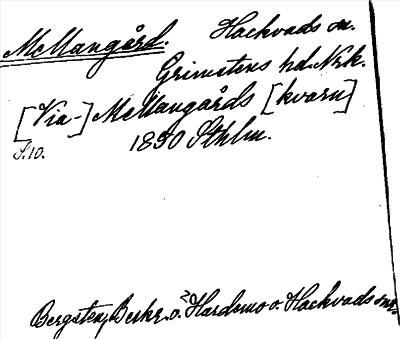 Mellangård. Hackvads sn.
Grimstens hd. Nrk.
[Via-] Mellangårds [kvarn]
S. 10. 1890 Sthlm.
Bergsten, Beskr. o. Hardemo o. Hackvads snr.